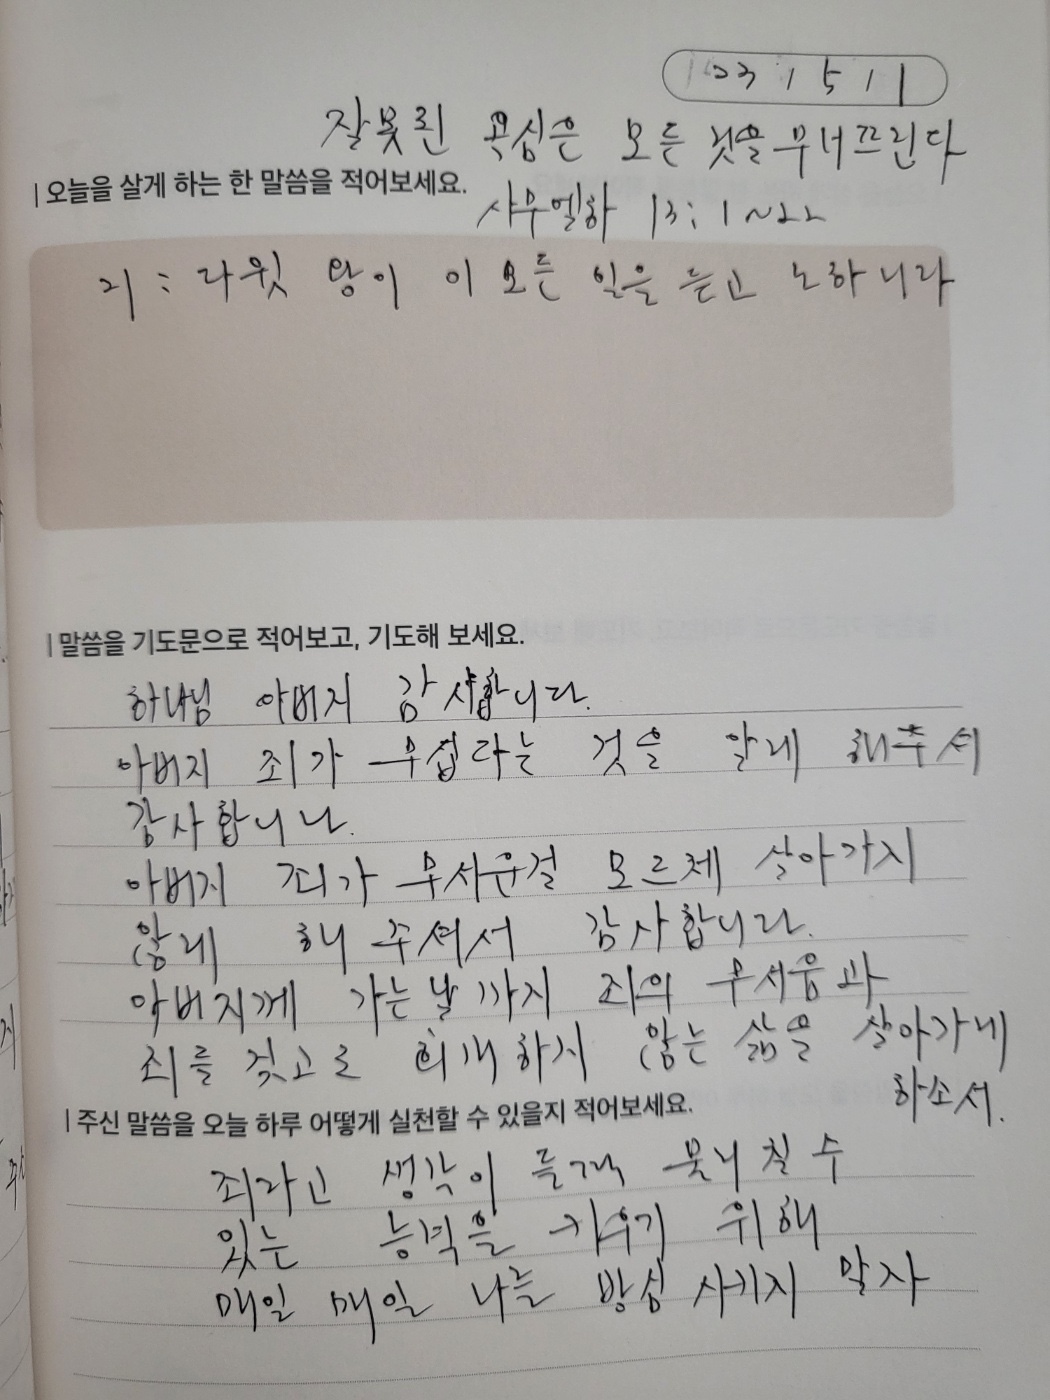 23 / 5 / 1
잘못된 욕심은 모든 것을 무너뜨린다
오늘을 살게 하는 한 말씀을 적어보세요.
사무엘하 13:1~22
21: 다윗 왕이 이 모든 일을 듣고 노하니라
말씀을 기도문으로 적어보고, 기도해 보세요.
하나님 아버지 감사합니다.
아버지 죄가 무섭다는 것을 알게 해주셔
감사합니다.
아버지 죄가 무서운걸 모르체 살아가지
않게 해 주셔서 감사합니다.
아버지께 가는날까지 죄의 무서움과
죄를 짓고도 회개하지 않는 삶을 살아가게
하소서.
주신 말씀을 오늘 하루 어떻게 실천할 수 있을지 적어보세요.
죄라고 생각이 들때 물니칠 수
있는 능력을 키우기 위해
매일 매일 나를 방심 시키지 말자